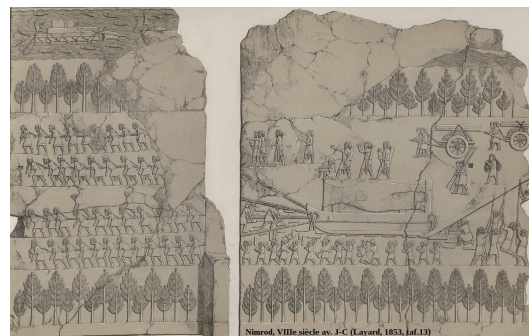 Nimrod, VIIIe siècle av. J-C (Layard, 1853, taf.13)